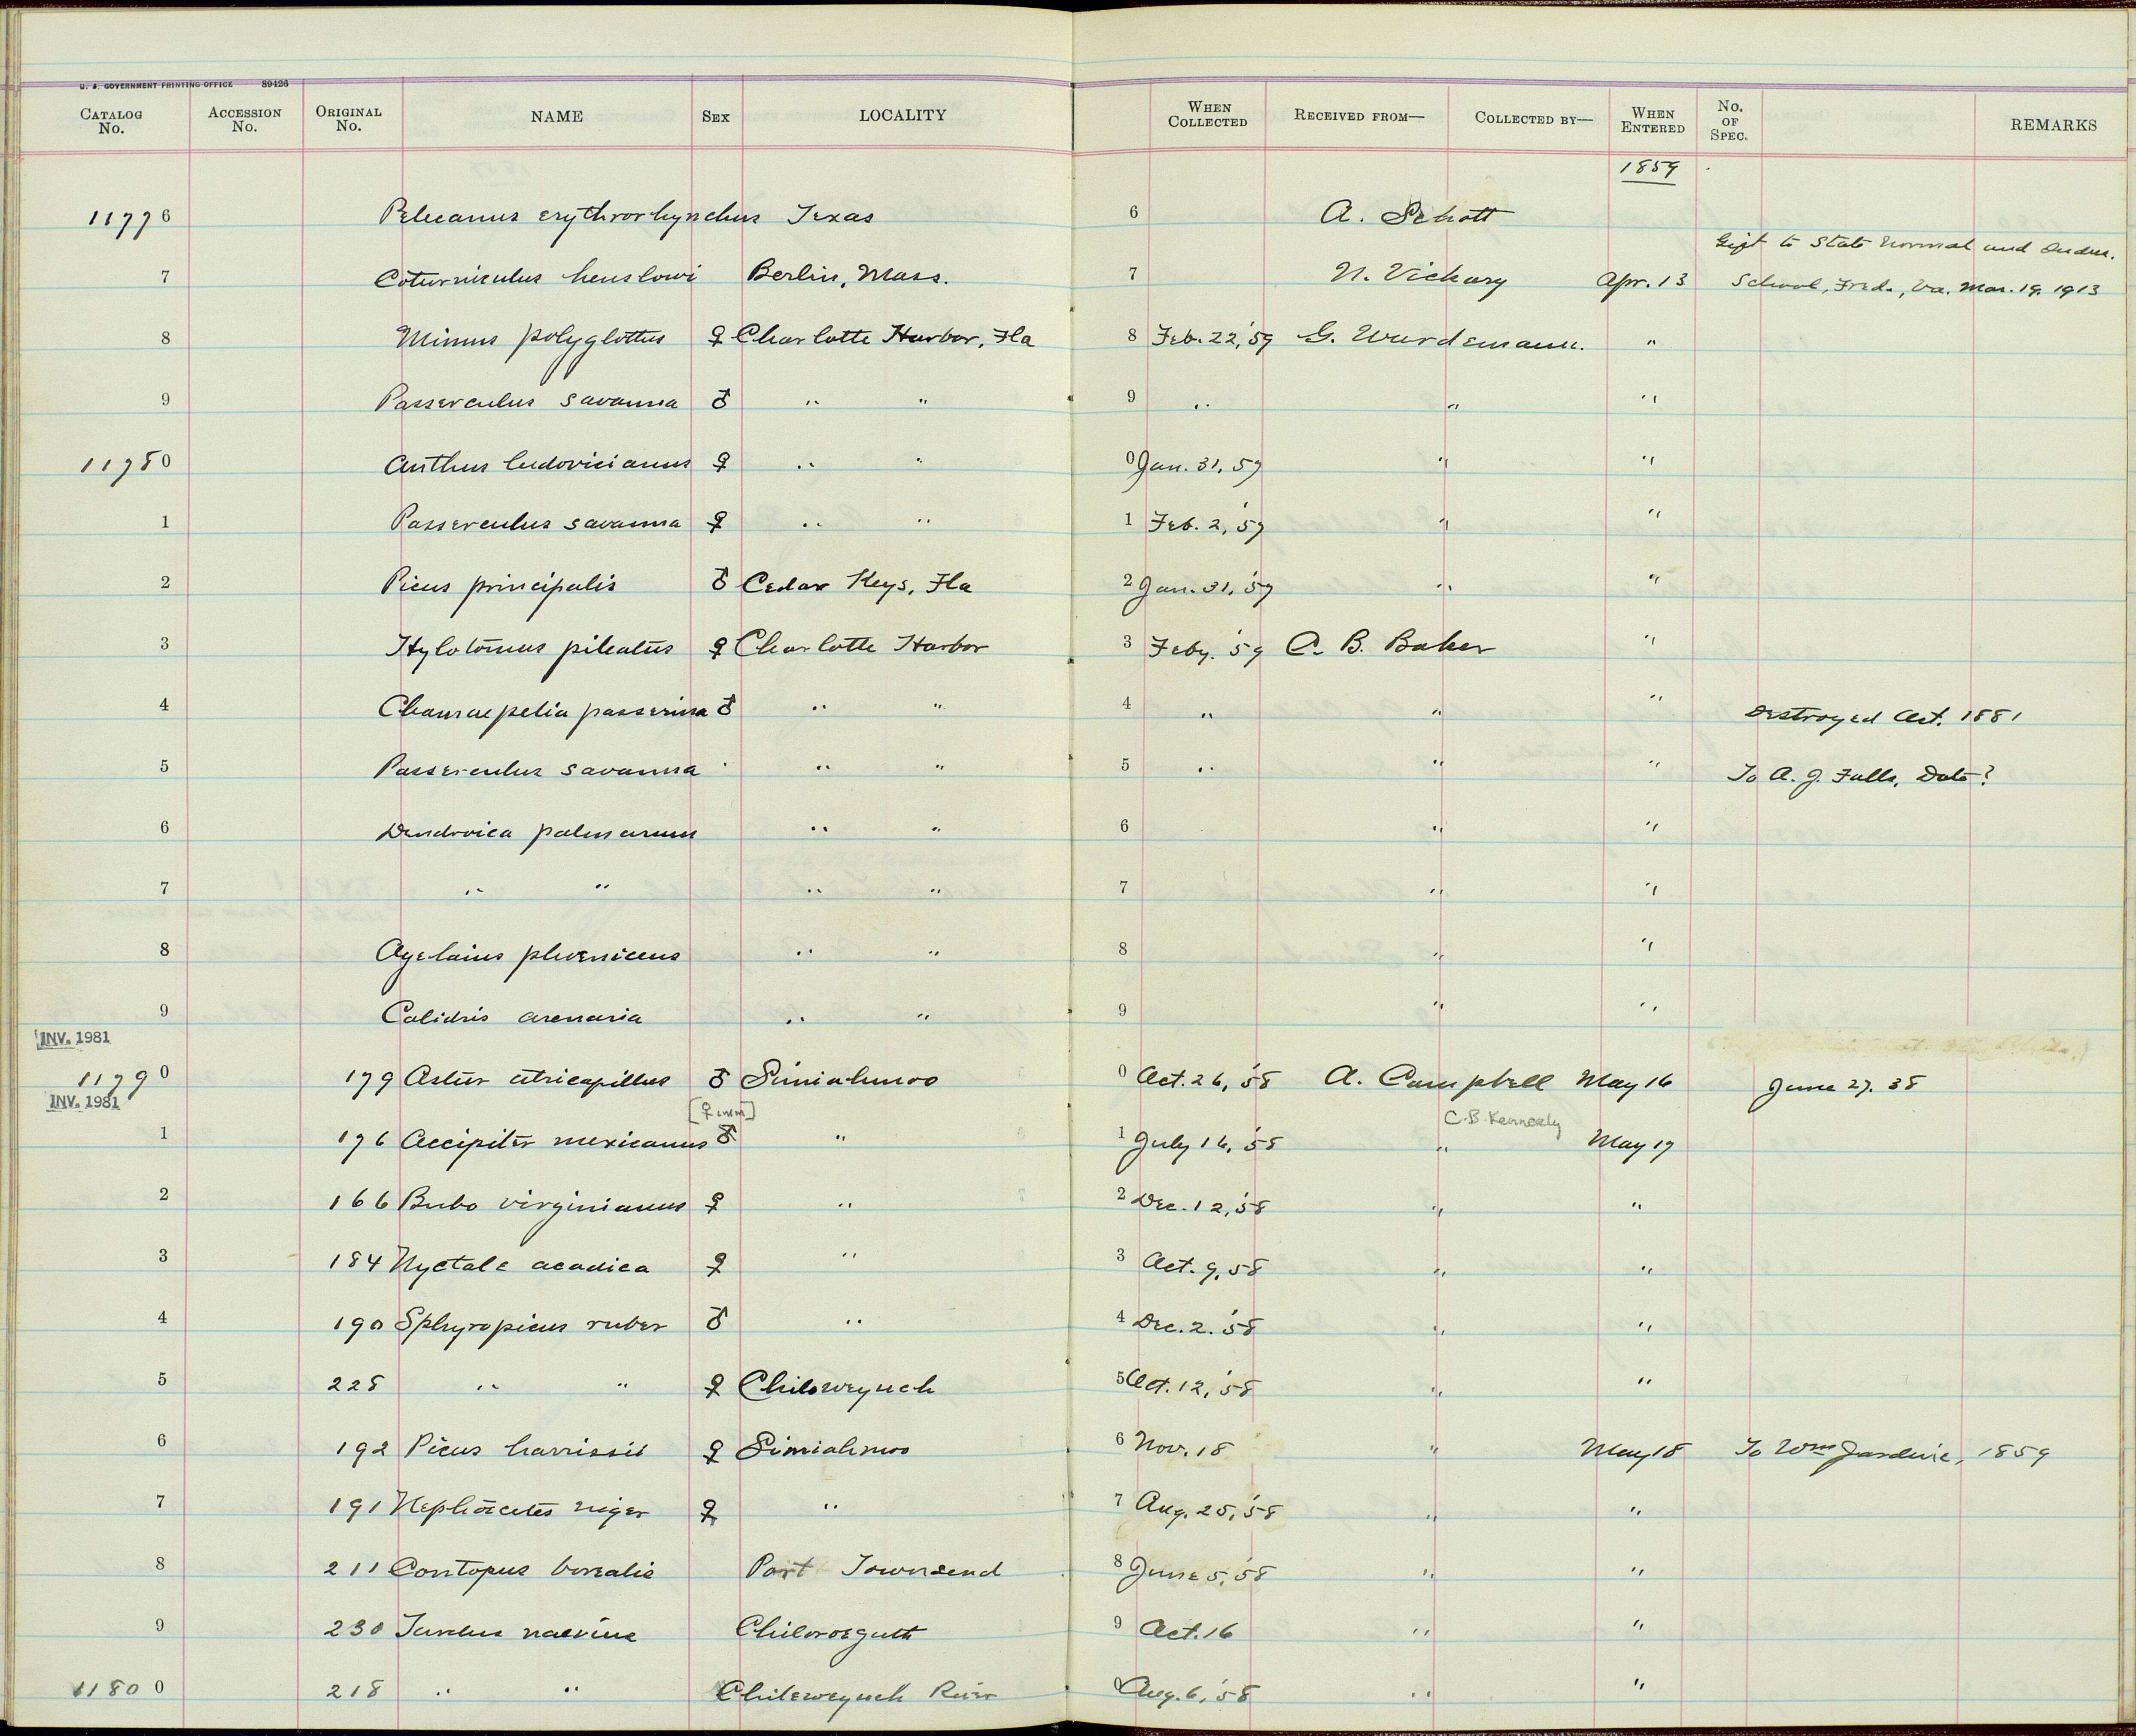 U. S. GOVERNMENT PRINTING OFFICE 89426
CATALOG No. ACCESSION No. ORIGINAL No. NAME SEX LOCALITY WHEN COLLECTED RECEIVED FROM— COLLECTED BY— WHEN ENTERED No. OF SPEC. REMARKS
1859
11776 Pelecanus erythrorhynchus Texas 6 A. Schott
Gift to State Normal and Indus.
7 Coturniculus henslowi Berlin, Mass. 7 N. Vickary Apr. 13 School, Fred., Va. Mar. 19. 1913
8 Mimus polyglottus ♀ Charlotte Harbor, Fla 8 Feb. 22, '59 G. Wurdemann. "
9 Passerculus savanna ♂ " " 9 " " "
11780 Anthus ludovicianus ♀ " " 0 Jan. 31, 59 " "
1 Passerculus savanna ♀ " " 1 Feb. 2, '59 " "
2 Picus principalis ♂ Cedar Keys, Fla 2 Jan. 31, '59 " "
3 Hylotomus pileatus ♀ Charlotte Harbor 3 Feby. '59 A. B. Baker "
4 Chamaepelia passerina ♂ " " 4 " " " Destroyed Oct. 1881
5 Passerculus savanna " " 5 " " " To A. J. Falls, Date?
6 Dendroica palmarum " " 6 " "
7 " " " " 7 " "
8 Agelaius phoeniceus " " 8 " "
9 Calidris arenaria " " 9 " "
INV. 1981
11790 179 Astur atricapillus ♂ Simiahmoo 0 Oct. 26, '58 A. Campbell May 16 June 27. 38
INV. 1981 [♀ imm] C.B. Kennerly
1 176 Accipiter mexicanus ♂ " 1 July 16, '58 " May 17
2 166 Bubo virginianus ♀ " 2 Dec. 12, '58 " "
3 184 Nyctale acadica ♀ " 3 Oct. 9, 58 " "
4 190 Sphyropicus ruber ♂ " 4 Dec. 2. '58 " "
5 228 " " ♀ Chiloweyuch 5 Oct. 12, '58 " "
6 192 Picus harrissii ♀ Simiahmoo 6 Nov. 18 " May 18 To Wm Jardine, 1859
7 191 Nephoecetes niger ♀ " 7 Aug. 25, '58 " "
8 211 Contopus borealis Port Townsend 8 June 5, '58 " "
9 230 Turdus naevius 9 Oct. 16 " "
11800 218 " " Chileweyuch River 0 Aug. 6, '58 " "